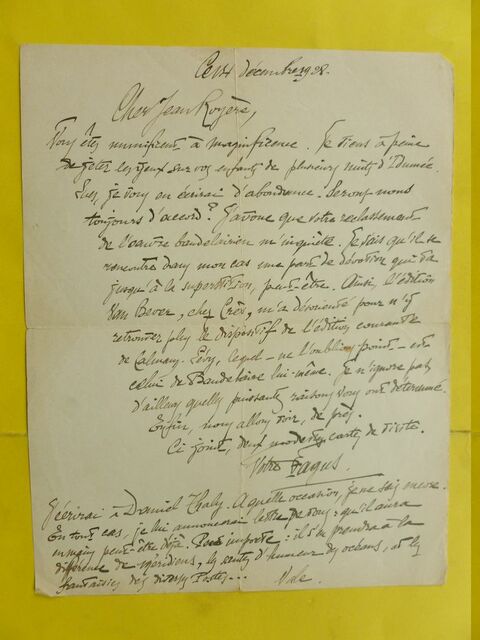 Ce 14 décembre 1928.
Cher Jean Royère,
Vous êtes munificent à magnificence. Je viens à peine
de jeter les yeux sur vos enfants de plusieurs nuits d'Idumée.
je vous en écrirai d'abondance. Serons-nous
toujours d'accord ? J'avoue que votre reclassement
de l'œuvre baudelairien m'inquiète. Je sais qu'il se
rencontre dans mon cas une part de dévotion qui va
jusqu'à la superstition, peut-être. Ainsi, l'édition
Van Bever, chez Crès, m'a désorienté pour n'y
retrouver plus le dispositif de l'édition courante
de Calmann-Lévy, lequel – ne l'oublions point – est
celui de Baudelaire lui-même. Je n'ignore pas
d'ailleurs quelles puissantes raisons vous ont déterminé.
Enfin, nous allons voir, de près.
Ci joint, deux modestes cartes de visite.
Votre Fagus.
J'écrirai à Daniel Thaly. A quelle occasion, je ne sais encore.
En tout cas, je lui annoncerai lettre de vous, qu'il aura
peut-être déjà. Peu importe : il s'en prendra à la
différence de méridiens, les sautes d'humeur des océans, et les
fantaisies des diverses Postes...
Vale.